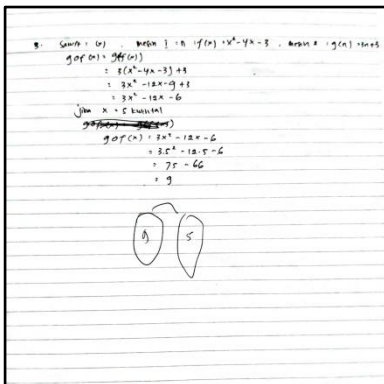 3. Sawit : (x) , mesin 1 = n : f(x) = x² - 4x - 3 , mesin 2 : g(n) = 3n+3
gof(x) = g(f(x))
= 3(x² - 4x - 3) + 3
= 3x² - 12x - 9 + 3
= 3x² - 12x - 6
jika x = 5 kuintal
gof(x) = 3x² - 12x - 6
= 3.5² - 12.5 - 6
= 75 - 66
= 9
9 5